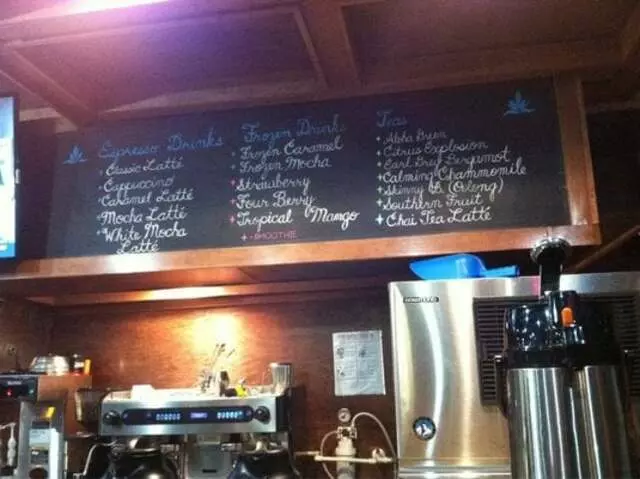 Espresso Drinks
+ Classic Latté
+ Cappuccino
+ Caramel Latté
+ Mocha Latté
+ White Mocha
Latté
Frozen Drinks
+ Frozen Caramel
+ Frozen Mocha
+ Strawberry
+ Four Berry
+ Tropical Mango
+ - SMOOTHIE
Teas
+ Aloha Green
+ Citrus Explosion
+ Earl Grey Bergamot
+ Calming Chammomile
+ Skinny (Oolong)
+ Southern Fruit
+ Chai Tea Latté